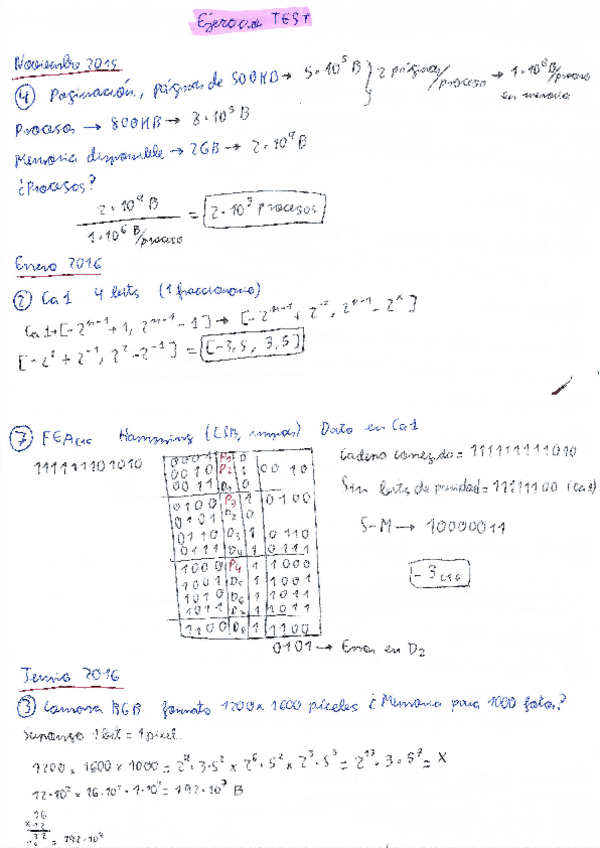 Ejercicios TEST
Noviembre 2015
④ Paginación, páginas de 500KB → 5·10⁵ B } 2 páginas/proceso → 1·10⁶ B/proceso
en memoria
Procesos → 800KB → 8·10⁵ B
Memoria disponible → 2GB → 2·10⁹ B
¿Procesos?
2·10⁹ B / 1·10⁶ B/proceso = 2·10³ procesos
Enero 2016
② Ca1 4 bits (1 fraccionario)
Ca1→[-2ⁿ⁻¹+1, 2ⁿ⁻¹-1] → [-2ⁿ⁻¹+2⁻ˣ, 2ⁿ⁻¹-2⁻ˣ]
[-2²+2⁻¹, 2²-2⁻¹] = [-3,5, 3,5]
⑦ FEA Hamming (LSB, impar) Dato en Ca1
111111101010
0001 P₁ 0
0010 P₂ 1 0010
0011 D₁ 0
0100 P₃ 1 0100
0101 D₂ 0
0110 D₃ 1 0110
0111 D₄ 1 0111
1000 P₄ 1 1000
1001 D₅ 1 1001
1010 D₆ 1 1011
1011 D₇ 1 1011
1100 D₈ 1 1100
0101 → Error en D₂
Cadena corregida = 111111111010
Sin bits de paridad = 11111100 (Ca1)
S-M → 10000011
-3
Junio 2016
③ Camara RGB formato 1200x1600 píxeles ¿Memoria para 1000 fotos?
Supongo 1bit = 1 pixel.
1200 x 1600 x 1000 = 2⁴·3·5² x 2⁶·5² x 2³·5³ = 2¹³·3·5⁷ = X
12·10² x 16·10² · 1·10³ = 192·10⁷ B
16
x12
32
16 = 192·10⁷